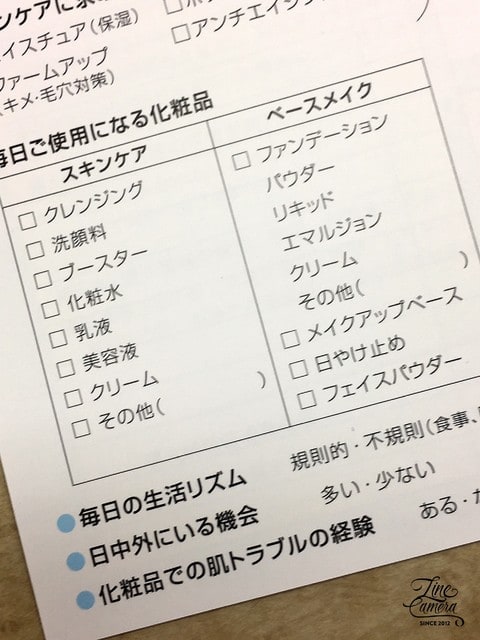 イスチュア(保湿)
アンチエイジ
ファームアップ
キメ・毛穴対策)
毎日ご使用になる化粧品
スキンケア
ベースメイク
□ クレンジング
□ 洗顔料
□ ブースター
□ 化粧水
□ 乳液
□ 美容液
□ クリーム
□ その他( )
□ ファンデーション
パウダー
リキッド
エマルジョン
クリーム
その他( )
□ メイクアップベース
□ 日やけ止め
□ フェイスパウダー
●毎日の生活リズム 規則的・不規則(食事、
●日中外にいる機会 多い・少ない
●化粧品での肌トラブルの経験 ある・
Line Camera
SINCE 2012